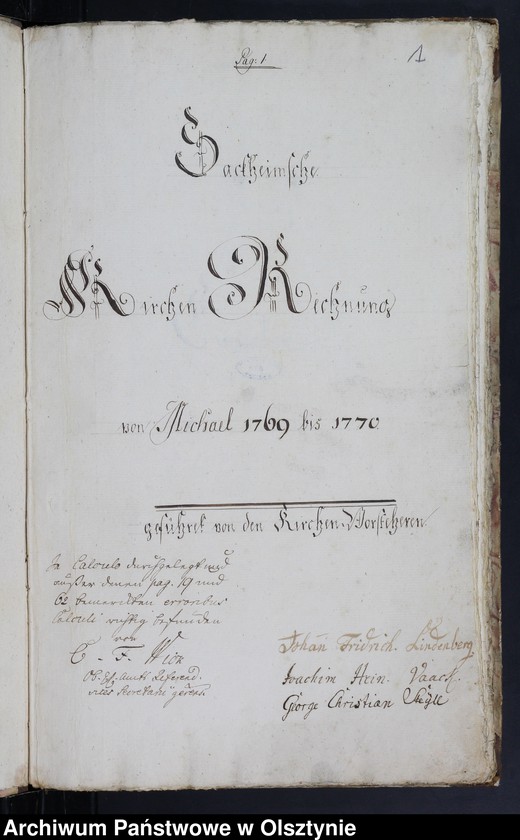 Pag: 1
1
Sackheimsche
Kirchen Rechnung
von Michael 1769 bis 1770
geführet von den Kirchen-Vorstehern
In Calculo durchgelegt und
außer denen pag. 19 und
62 bemerckten erroribus
Calculi richtig befunden
von
C. F.
Johann Fridrich. Lindenberg
Joachim Hein.
George Christian
Archiwum Państwowe w Olsztynie